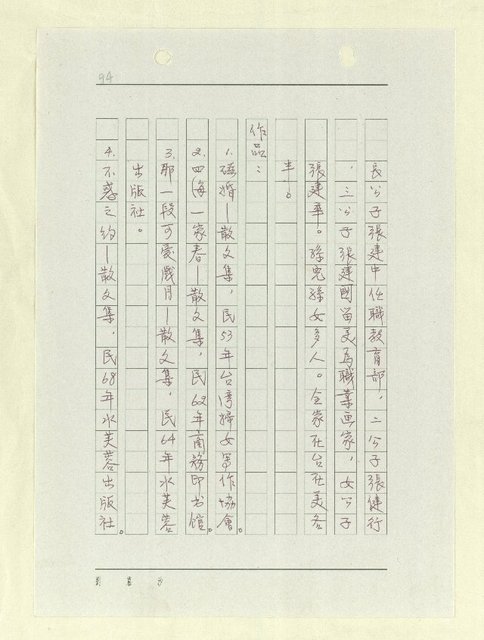 94
長公子張建中任職教育部,二公子張健行
,三公子張建國留美為職業画家,女公子
張建華。孫兒孫女多人。全家在台在美各
半。
作品:
1. 磁婚—散文集,民53年台湾婦女写作協會。
2. 四海一家春—散文集,民62年商務印书馆。
3. 那一段可愛歲月—散文集,民64年水芙蓉
出版社。
4. 不惑之約—散文集,民68年水芙蓉出版社。